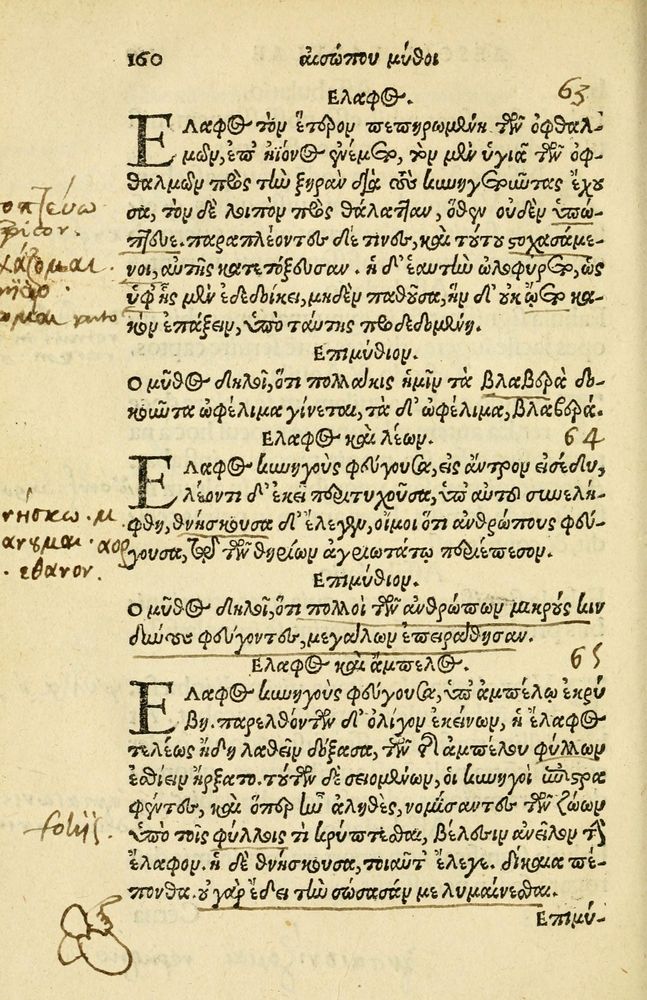 160 αἰσώπου μῦθοι
63
Ελαφος.
Ελαφος τὸν ἕτερον πεπηρωμένη τῶν ὀφθαλ-
μῶν, ἐπ' ἠϊόνος ἐνέμετο, τὸν μὲν ὑγιᾶ τῶν ὀφ-
θαλμῶν πρὸς τὴν ξηρὰν διὰ τοὺς κυνηγετοῦντας ἔχου
σα, τὸν δὲ λοιπὸν πρὸς θάλατταν, ὅθεν οὐδὲν ὑπώ-
πτευε. παραπλέοντες δέ τινες, καὶ τοῦτο στοχασάμε-
νοι, αὐτῆς κατετόξευσαν. ἡ δ' ἑαυτὴν ὠλοφύρετο, ὡς
ὑφ' ἧς μὲν ἐδεδοίκει, μηδὲν παθοῦσα, ἣν δ' οὐκ ᾤετο κα-
κὸν ἐπάξειν, ὑπὸ ταύτης προδεδομένη.
οπτεύω
χάζομαι.
Επιμύθιον.
Ο μῦθος δηλοῖ, ὅτι πολλάκις ἡμῖν τὰ βλαβερὰ δο-
κοῦντα ὠφέλιμα γίνεται, τὰ δ' ὠφέλιμα, βλαβερά.
64
Ελαφος καὶ λέων.
Ελαφος κυνηγοὺς φεύγουσα, εἰς ἄντρον εἰσέδυ,
λέοντι δ' ἐκεῖ περιτυχοῦσα, ὑπ' αὐτοῦ συνελή-
φθη, θνήσκουσα δ' ἔλεγεν, οἴμοι ὅτι ἀνθρώπους φεύ-
γουσα, τῷ τῶν θηρίων ἀγριωτάτῳ περιέπεσον.
νήσκω. μ.
ανουμαι. αορ
. εθανον.
Επιμύθιον.
Ο μῦθος δηλοῖ, ὅτι πολλοὶ τῶν ἀνθρώπων μικροὺς κιν
δύνους φεύγοντες, μεγάλων ἐπειράθησαν.
65
Ελαφος καὶ ἄμπελος.
Ελαφος κυνηγοὺς φεύγουσα, ὑπ' ἀμπέλῳ ἐκρύ
βη. παρελθόντων δ' ὀλίγον ἐκείνων, ἡ ἔλαφος
τελέως ἤδη λαθεῖν δόξασα, τῶν τῆς ἀμπέλου φύλλων
ἐσθίειν ἤρξατο. τούτων δὲ σειομένων, οἱ κυνηγοὶ ἐπιστρα
φέντες, καὶ ὅπερ ἦν ἀληθὲς, νομίσαντες τῶν ζώων
ὑπὸ τοῖς φύλλοις τὶ κρύπτεσθαι, βέλεσιν ἀνεῖλον τὴν
ἔλαφον. ἡ δὲ θνήσκουσα, τοιαῦτ' ἔλεγε. δίκαια πέ-
πονθα. οὐ γὰρ ἔδει τὴν σώσασάν με λυμαίνεσθαι.
foliis.
Επιμύ-